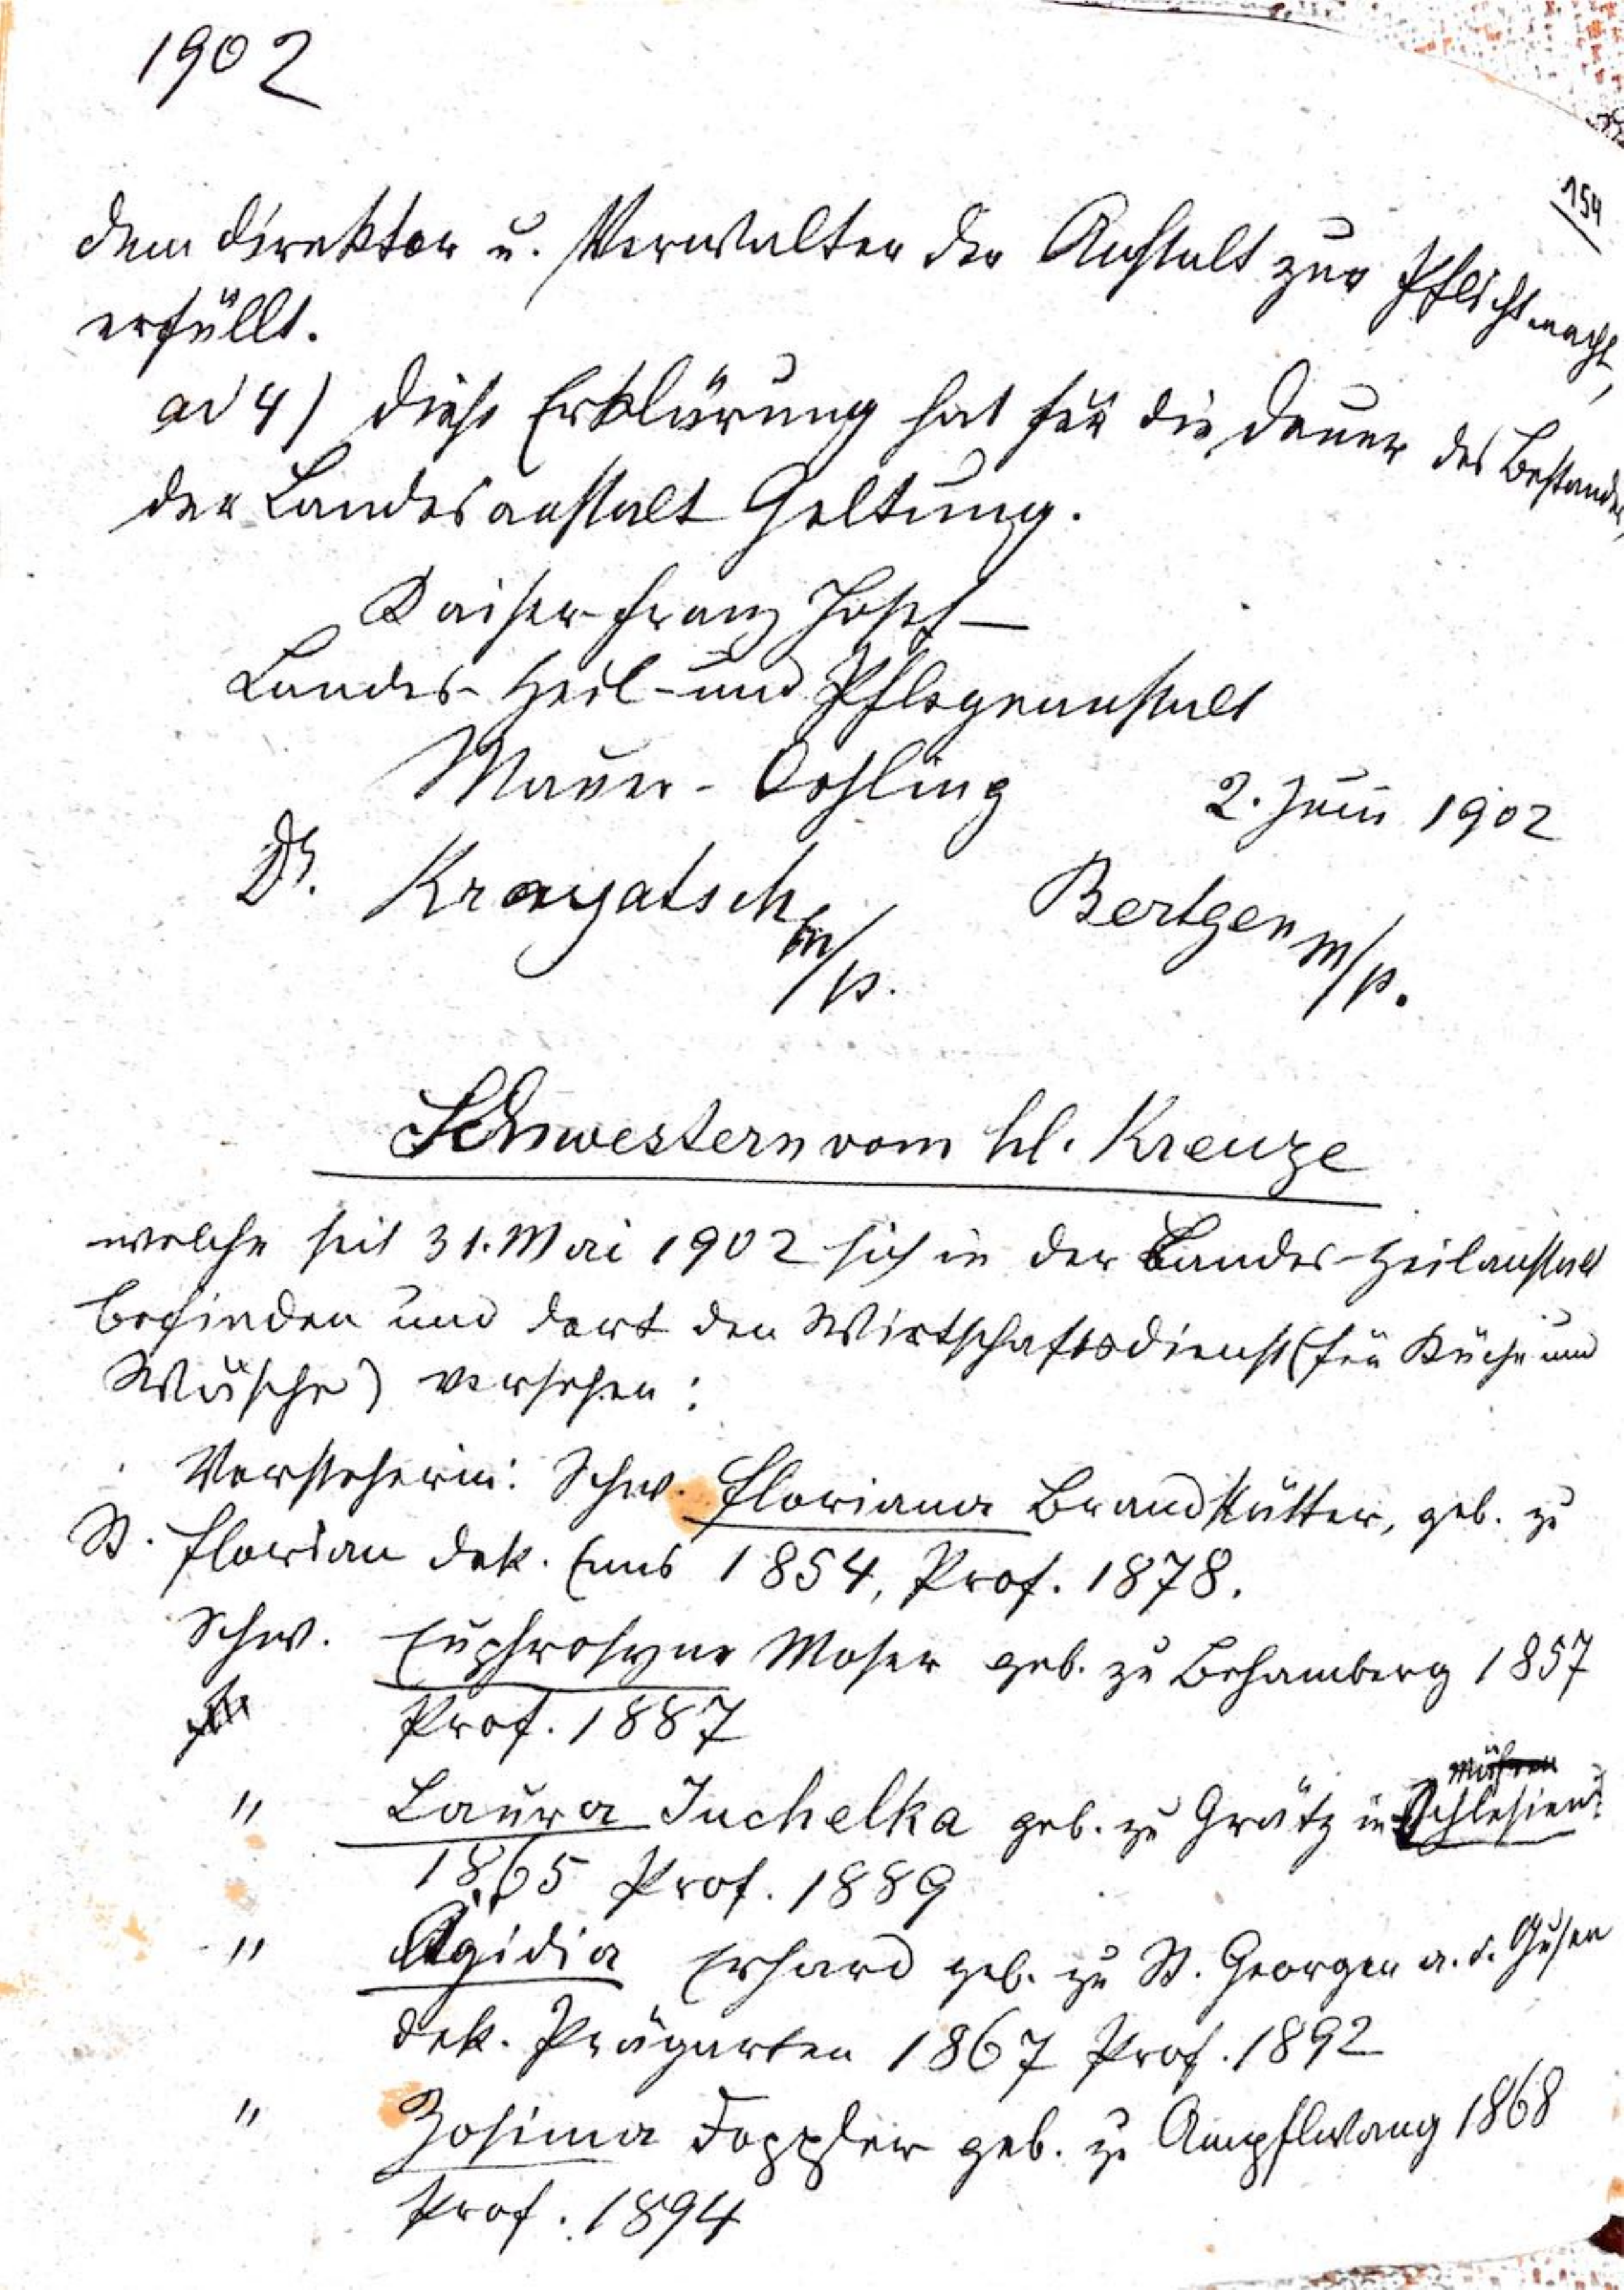 1902
154
dem Direktor u. Verwalter der Anstalt zur Pflicht macht,
erfüllt.
ad 4) Diese Erklärung hat für die Dauer des Bestandes
der Landesanstalt Geltung.
Kaiser Franz Josef-
Landes-Heil-und Pflegeanstalt
Mauer-Oehling 2. Juni 1902
Dr. Krayatsch m/p. Bertgen m/p.
Schwestern vom hl. Kreuze
welche seit 31. Mai 1902 sich in der Landes-Heilanstalt
befinden und dort den Wirtschaftsdienst (für Küche und
Wäsche) versehen:
Vorsteherin: Schw. Floriana Brandstätter, geb. zu
St. Florian Dek. Enns 1854, Prof. 1878.
Schw. Euphrosyne Moser geb. zu Behamberg 1857
Prof. 1887
Mähren
" Laura Juchelka geb. zu Grätz in Schlesien
1865 Prof. 1889
" Ägidia Erhard geb. zu St. Georgen a. d. Gusen
Dek. Prägarten 1867 Prof. 1892
" Zosima Doppler geb. zu Ampflwang 1868
Prof. 1894